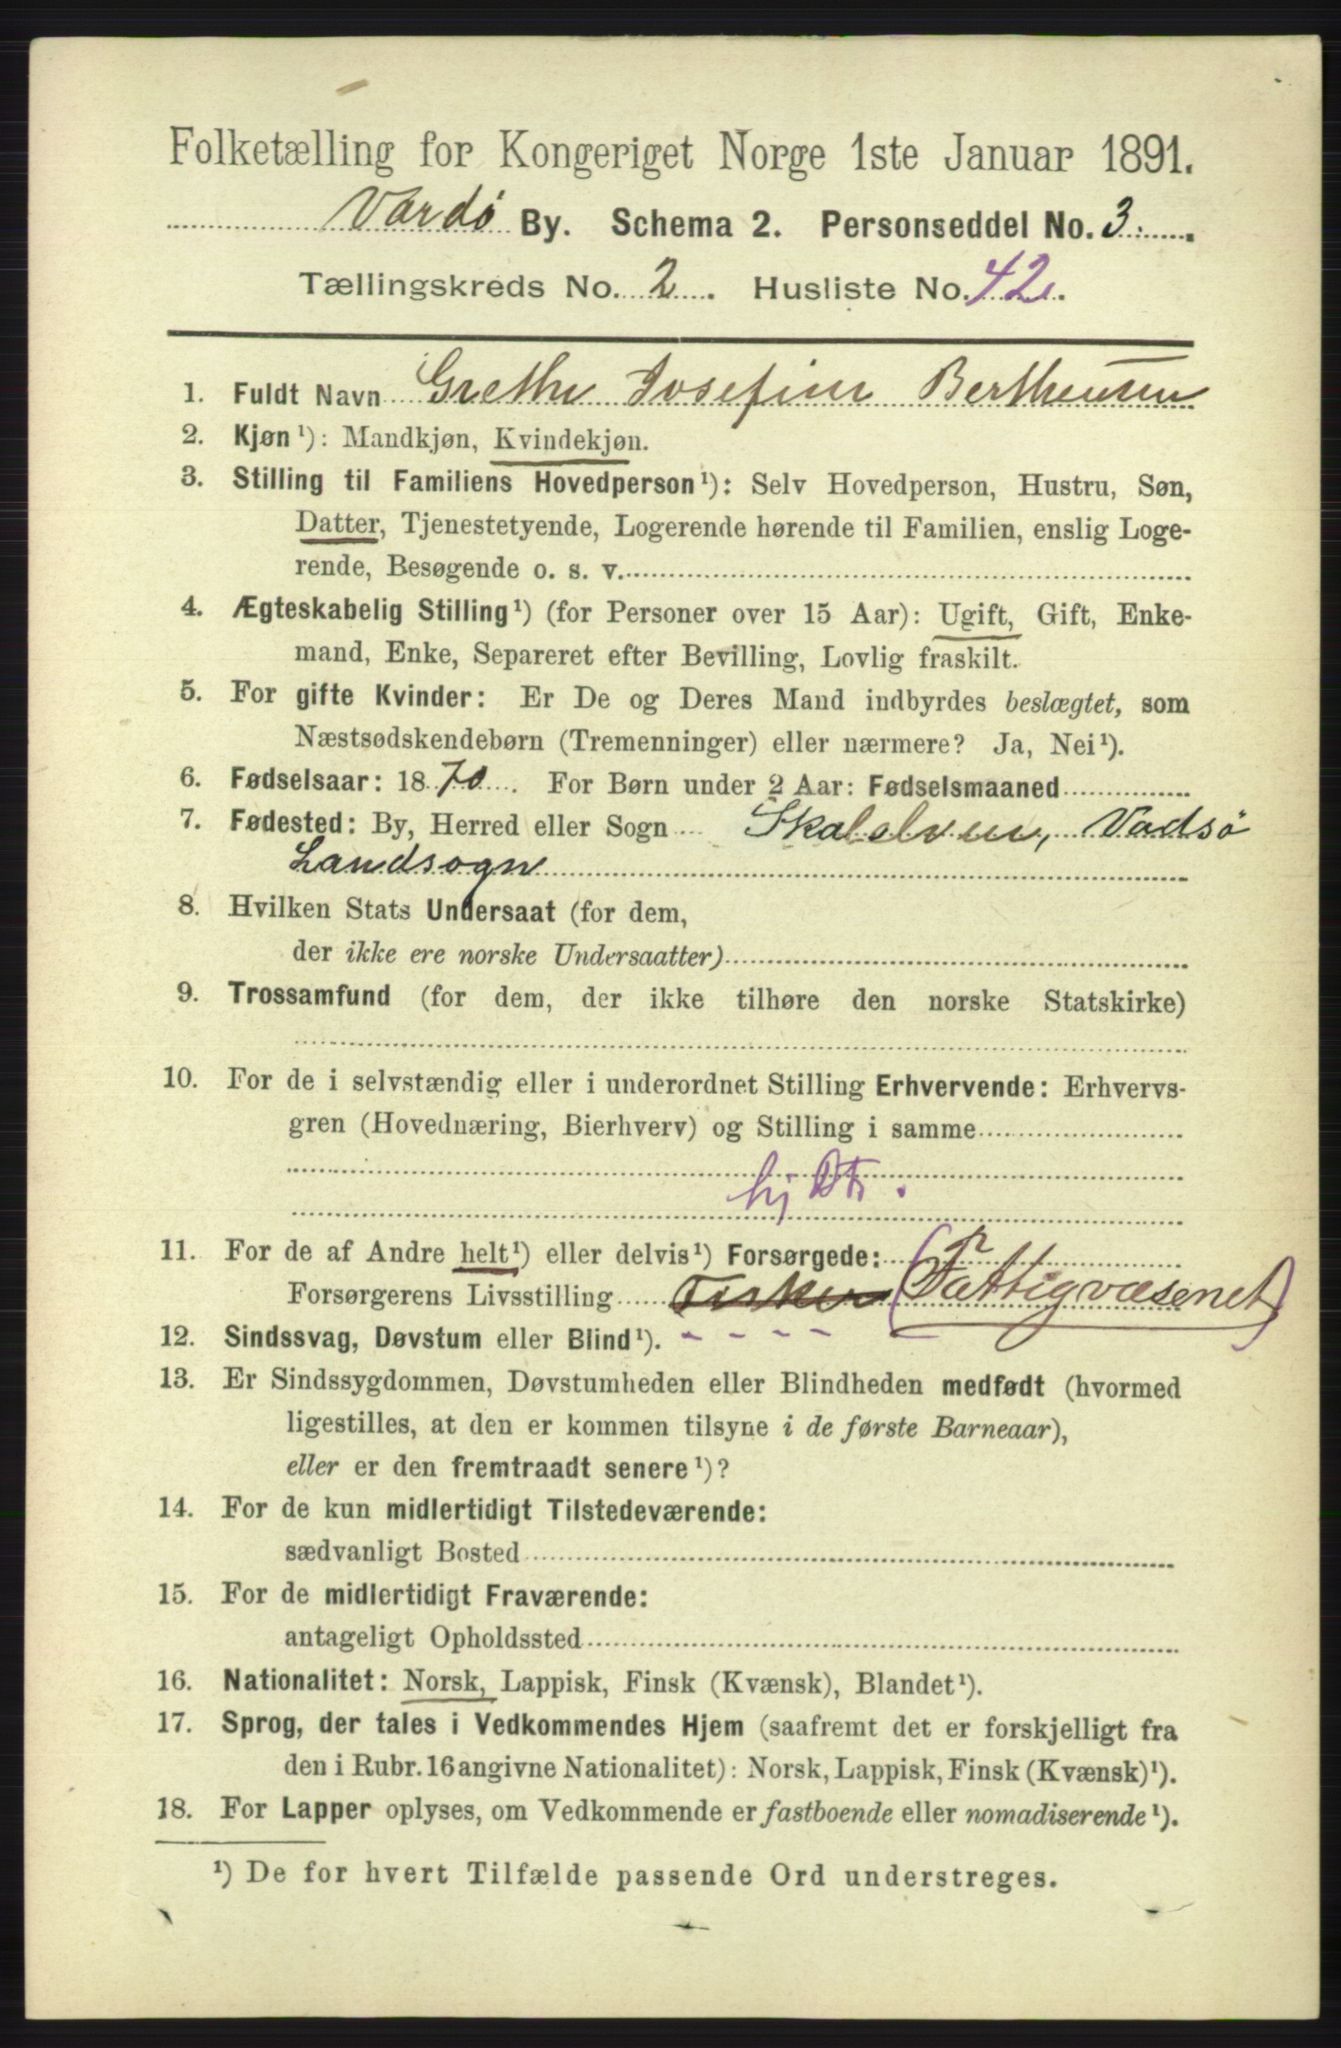 Folketælling for Kongeriget Norge 1ste Januar 1891.
Vardø By. Schema 2. Personseddel No. 3.
Tællingskreds No. 2. Husliste No. 42.
1. Fuldt Navn Grethe Josefine Berthensen
2. Kjøn¹): Mandkjøn, Kvindekjøn.
3. Stilling til Familiens Hovedperson¹): Selv Hovedperson, Hustru, Søn,
Datter, Tjenestetyende, Logerende hørende til Familien, enslig Loge-
rende, Besøgende o. s. v.
4. Ægteskabelig Stilling¹) (for Personer over 15 Aar): Ugift, Gift, Enke-
mand, Enke, Separeret efter Bevilling, Lovlig fraskilt.
5. For gifte Kvinder: Er De og Deres Mand indbyrdes beslægtet, som
Næstsødskendebørn (Tremenninger) eller nærmere? Ja, Nei¹).
6. Fødselsaar: 1870. For Børn under 2 Aar: Fødselsmaaned
7. Fødested: By, Herred eller Sogn Skalelven, Vadsø
Landsogn
8. Hvilken Stats Undersaat (for dem,
der ikke ere norske Undersaatter)
9. Trossamfund (for dem, der ikke tilhøre den norske Statskirke)
10. For de i selvstændig eller i underordnet Stilling Erhvervende: Erhvervs-
gren (Hovednæring, Bierhverv) og Stilling i samme
hj Dtr.
11. For de af Andre helt¹) eller delvis¹) Forsørgede:
Forsørgerens Livsstilling Fisker (Fattigvæsenet)
12. Sindssvag, Døvstum eller Blind¹).
13. Er Sindssygdommen, Døvstumheden eller Blindheden medfødt (hvormed
ligestilles, at den er kommen tilsyne i de første Barneaar),
eller er den fremtraadt senere¹)?
14. For de kun midlertidigt Tilstedeværende:
sædvanligt Bosted
15. For de midlertidigt Fraværende:
antageligt Opholdssted
16. Nationalitet: Norsk, Lappisk, Finsk (Kvænsk), Blandet¹).
17. Sprog, der tales i Vedkommendes Hjem (saafremt det er forskjelligt fra
den i Rubr. 16 angivne Nationalitet): Norsk, Lappisk, Finsk (Kvænsk)¹).
18. For Lapper oplyses, om Vedkommende er fastboende eller nomadiserende¹).
¹) De for hvert Tilfælde passende Ord understreges.